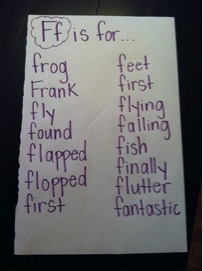 Ff is for...
frog
Frank
fly
found
flapped
flopped
first
feet
first
flying
falling
fish
finally
flutter
fantastic